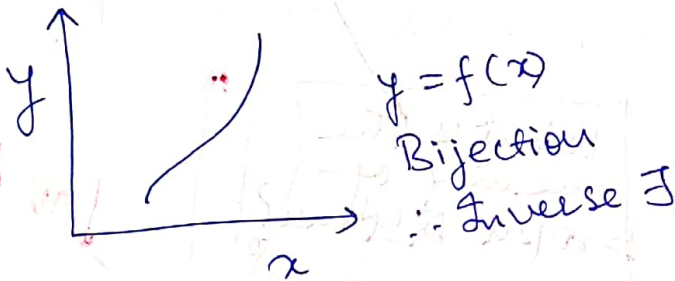 y
y = f(x)
Bijection
∴ Inverse ∃
x